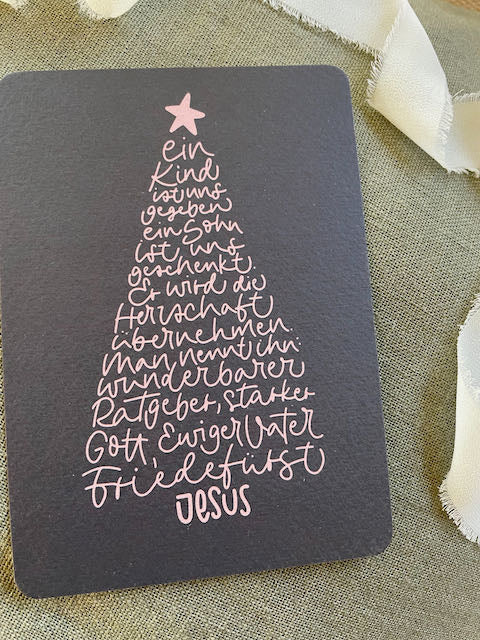 ein
Kind
ist uns
gegeben
ein Sohn
ist uns
geschenkt.
Er wird die
Herrschaft
übernehmen.
Man nennt ihn:
wunderbarer
Ratgeber, starker
Gott, Ewiger Vater
Friedefürst
Jesus